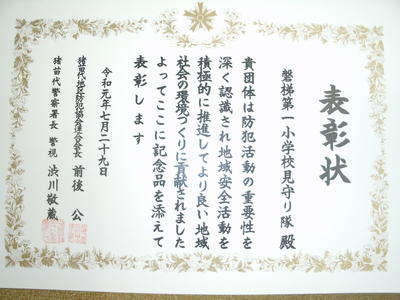 表彰状
磐梯第一小学校見守り隊 殿
貴団体は防犯活動の重要性を
深く認識され地域安全活動を
積極的に推進してより良い地域
社会の環境づくりに貢献されました
よってここに記念品を添えて
表彰します
令和元年七月二十九日
猪苗代地区防犯協会連合会会長 前後 公
猪苗代警察署長 警視 渋川敏蔵